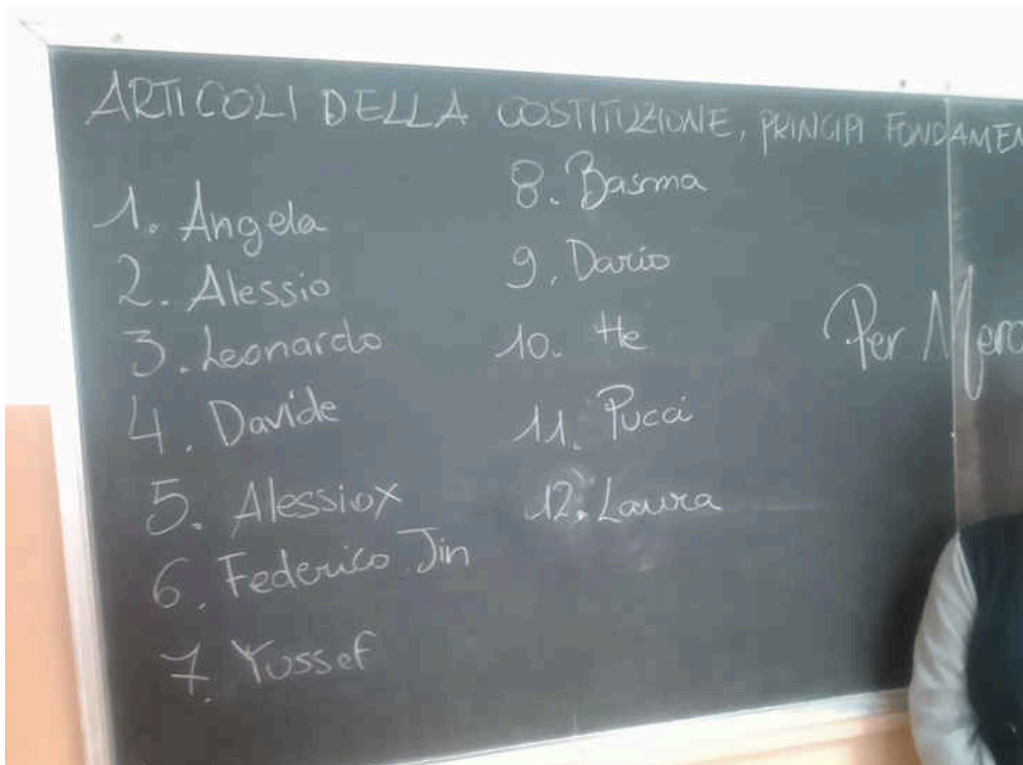 ARTICOLI DELLA COSTITUZIONE, PRINCIPI FONDAMEN
1. Angela
2. Alessio
3. Leonardo
4. Davide
5. Alessiox
6. Federico Jin
7. Yussef
8. Basma
9. Dario
10. He
11. Pucci
12. Laura
Per Merc